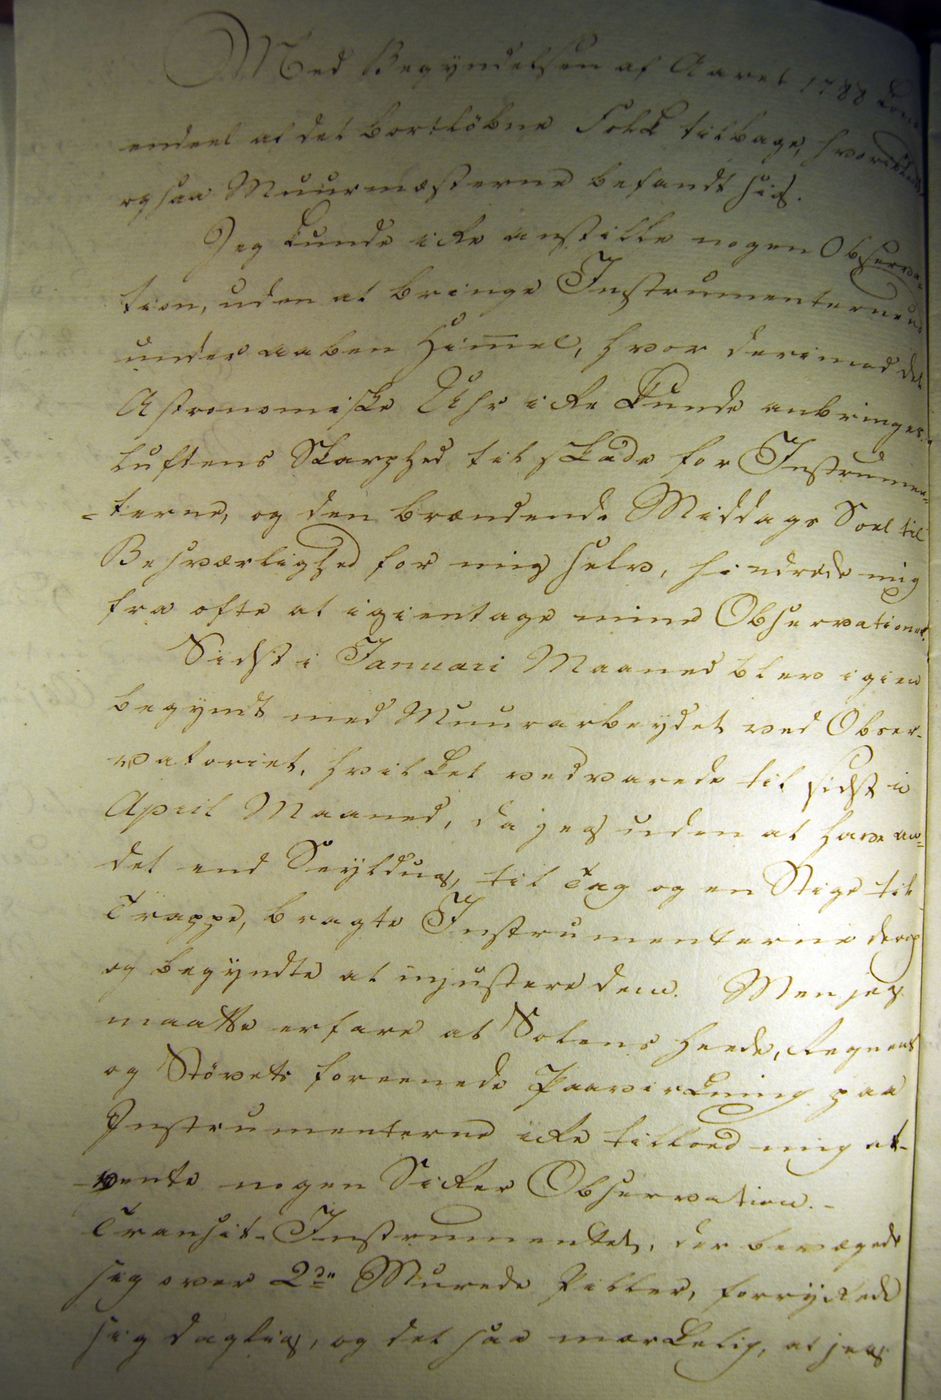 Med Begyndelsen af Aaret 1788 kom
endeel af det bortløbne Folk tilbage, hvoriblandt
ogsaa Muurmæsterne befandt sig.
Jeg kunde icke anstille nogen Observa-
tion, uden at bringe Instrumenterne ud
under aaben Himmel, hvor derimod det
Astronomiske Uhr icke kunde anbringes.
Luftens Skarphed til skade for Instrumen-
-terne, og den brændende Middags Soel til
Besværlighed for mig selv, hindrede mig
fra ofte at igientage mine Observationer.
Sidst i Januari Maaned blev igien
begyndt med Muurarbeydet ved Obser-
vatoriet, hvilket vedvarede til sidst i
April Maaned, da jeg uden at have an-
det end Seyldug, til Tag og en Stige til
Trappe, bragte Instrumenterne derop
og begyndte at injustere dem. Men jeg
maatte erfare at Solens Heede, Regnens
og Støvets foreenede Paavirkning paa
Instrumenterne icke tillod mig at
vente nogen Sicker Observation.-
Transit-Instrumentet, der bevægede
sig over 2de Murede Piller, forryckede
sig daglig, og det saa mærkelig, at jeg